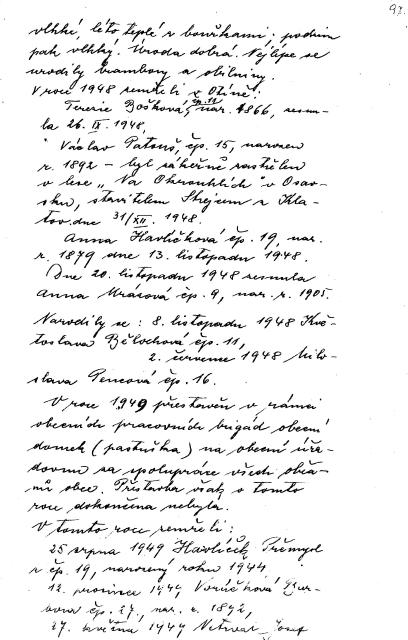 93.
vlhké, léto teplé s bouřkami; podzim
pak vlhký. Úroda dobrá. Nejlépe se
urodily brambory a obilniny.
V roce 1948 zemřeli v Otíně:
Terezie Bošková, čp. 11, nar. 1866, zemře-
la 26. IX. 1948,
Václav Patouš, čp. 15, narozen
r. 1892 – byl zákeřně zastřelen
v lese „Na Okrouhlích" v Osav-
sku, stavitelem z Kla-
tov dne 31/XII. 1948.
Anna Havlíčková čp. 19, nar.
r. 1879 dne 13. listopadu 1948.
Dne 20. listopadu 1948 zesnula
Anna Mrázová čp. 9, nar. r. 1905.
Narodily se: 8. listopadu 1948 Kvě-
toslava Bělochová čp. 11,
2. července 1948 Milo-
slava Pencová čp. 16.
V roce 1949 přestavěn v rámci
obecních pracovních brigád obecní
domek (pastuška) na obecní úřa-
dovnu za spolupráce všech obča-
nů obce. Přístavba však v tomto
roce dokončena nebyla.
V tomto roce zemřeli:
25 srpna 1949 Havlíček Přemysl
z čp. 19, narozený roku 1944
12. prosince 1949 Bar-
bora čp. 27., nar. r. 1892,
27. května 1949 Josef